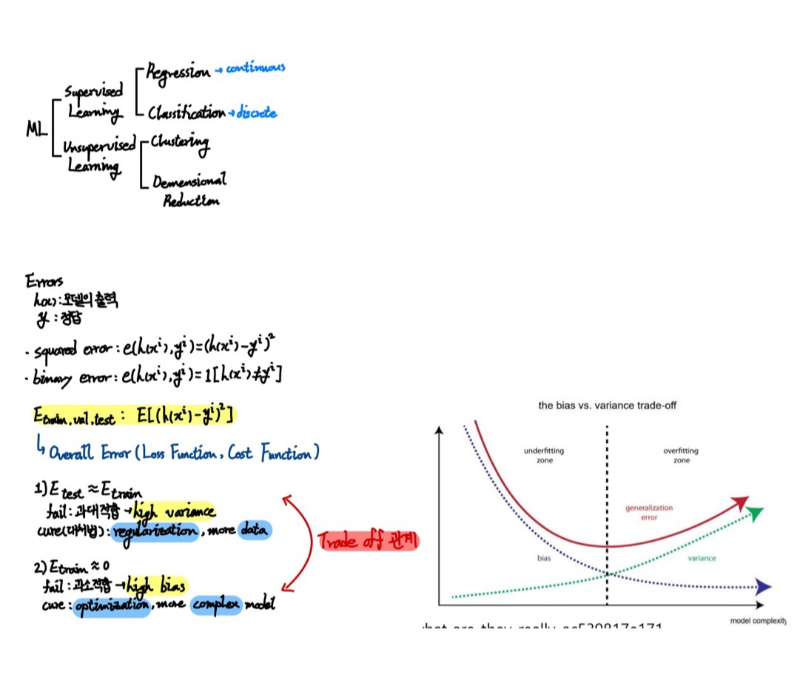 ML
Supervised Learning
Regression → continuous
Classification → discrete
Unsupervised Learning
Clustering
Demensional Reduction
Errors
h(x) : 모델의 출력
y : 정답
· squared error : e(h(xⁱ), yⁱ) = (h(xⁱ) - yⁱ)²
· binary error : e(h(xⁱ), yⁱ) = 1[h(xⁱ) ≠ yⁱ]
E train, val, test : E[(h(xⁱ) - yⁱ)²]
↳ Overall Error (Loss Function, Cost Function)
1) E test ≈ E train
fail : 과대적합 → high variance
cure(대처법) : regularization, more data
Trade off 관계
2) E train ≈ 0
fail : 과소적합 → high bias
cure : optimization, more complex model
the bias vs. variance trade-off
underfitting zone
overfitting zone
generalization error
bias
variance
model complexity